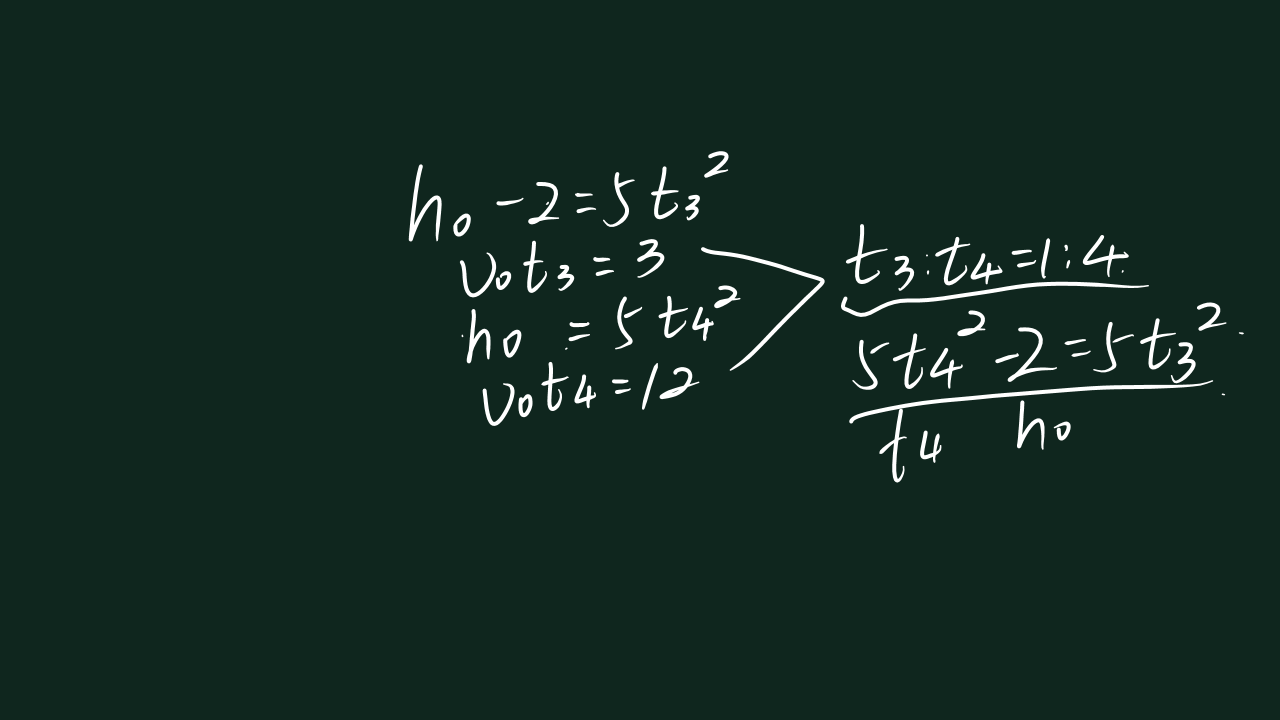 h₀ - 2 = 5t₃²
v₀t₃ = 3
h₀ = 5t₄²
v₀t₄ = 12
t₃ : t₄ = 1 : 4
5t₄² - 2 = 5t₃²
t₄ h₀